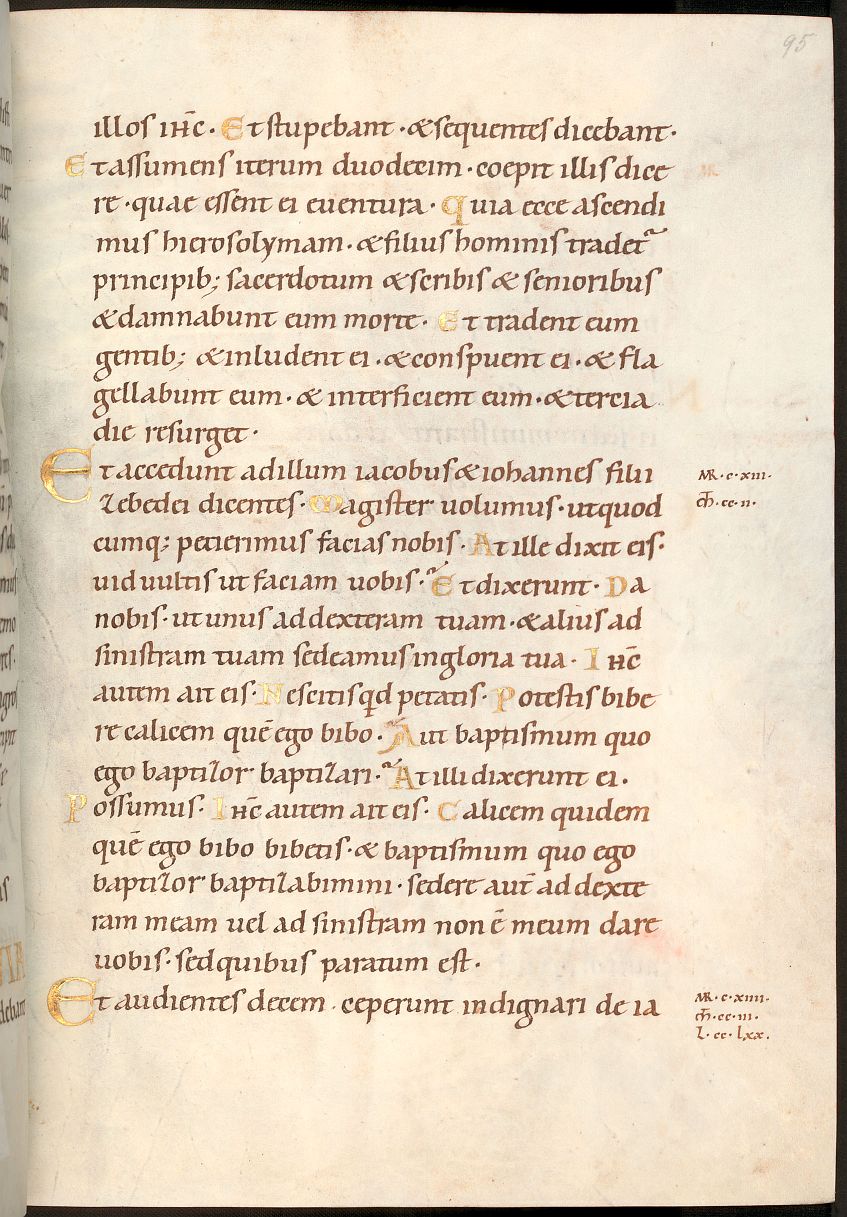 95
illos ihc̄. Et stupebant. & sequentes dicebant.
Et assumens iterum duodecim. coepit illis dice
re. quae essent ei euentura. Quia ecce ascendi
mus hierosolymam. & filius hominis tradet᷑
principib; sacerdotum & scribis & senioribus
& damnabunt eum morte. Et tradent eum
gentib; & inludent ei. & conspuent ei. & fla
gellabunt eum. & interficient eum. & tercia
die resurget.
Et accedunt ad illum iacobus & iohannes filii
MR. c. xiii.
zebedei dicentes. Magister uolumus. ut quod
M̄. cc. ii.
cumq; petierimus facias nobis. At ille dixit eis.
uid uultis ut faciam uobis. Et dixerunt. Da
nobis. ut unus ad dexteram tuam. & alius ad
sinistram tuam sedeamus in gloria tua. Ihc̄
autem ait eis. Nescitis qd petatis. Potestis bibe
re calicem quē ego bibo. Aut baptismum quo
ego baptizor baptizari. At illi dixerunt ei.
Possumus. Ihc̄ autem ait eis. Calicem quidem
quē ego bibo bibetis. & baptismum quo ego
baptizor baptizabimini. sedere aut̄ ad dexte
ram meam uel ad sinistram non ē meum dare
uobis. sed quibus paratum est.
Et audientes decem. ceperunt indignari de ia
MR. c. xiiii.
M̄. cc. iii.
L. cc. lxx.